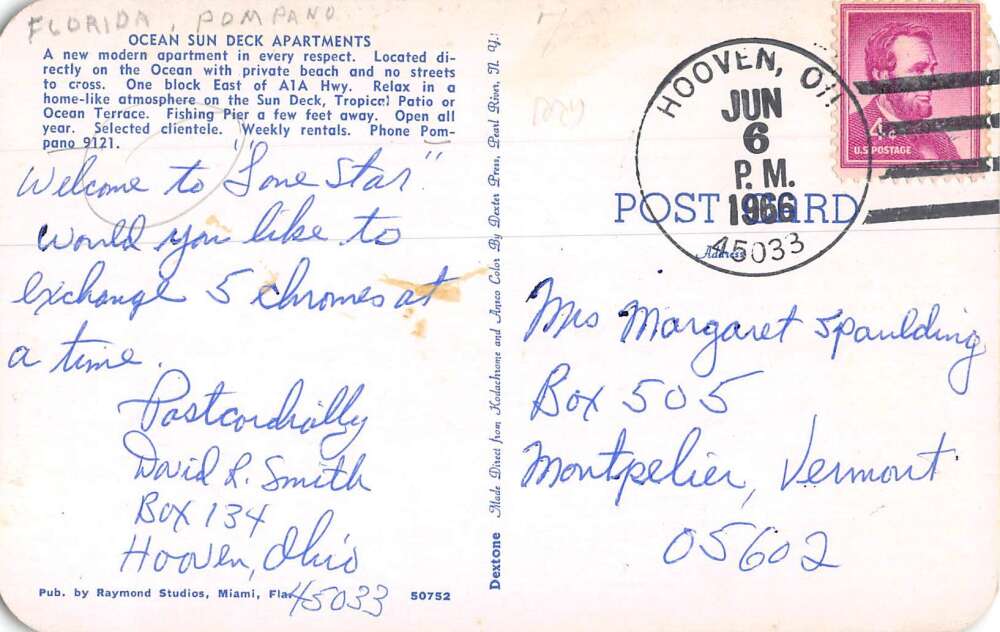 FLORIDA, POMPANO
OCEAN SUN DECK APARTMENTS
A new modern apartment in every respect. Located di-
rectly on the Ocean with private beach and no streets
to cross. One block East of A1A Hwy. Relax in a
home-like atmosphere on the Sun Deck, Tropical Patio or
Ocean Terrace. Fishing Pier a few feet away. Open all
year. Selected clientele. Weekly rentals. Phone Pom-
pano 9121.
Welcome to "Lone Star"
would you like to
exchange 5 chromes at
a time.
Postcordially
David L. Smith
Box 134
Hooven, Ohio
45033
Pub. by Raymond Studios, Miami, Fla.
50752
Dextone Made Direct from Kodachrome and Ansco Color By Dexter Press, Pearl River, N. Y.
HOOVEN, OH
JUN
6
P. M.
1966
45033
4¢
U.S. POSTAGE
POST CARD
Address
Mrs Margaret Spaulding
Box 505
Montpelier, Vermont
05602